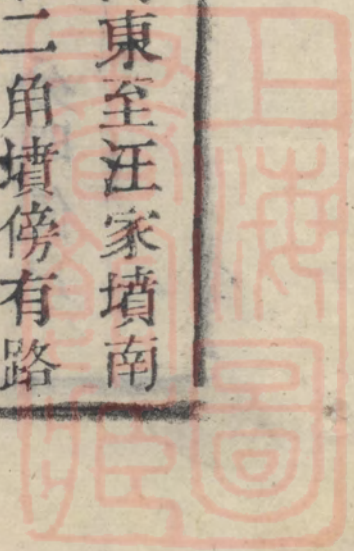 東至汪家墳南
二角墳傍有路
上海圖
書館藏